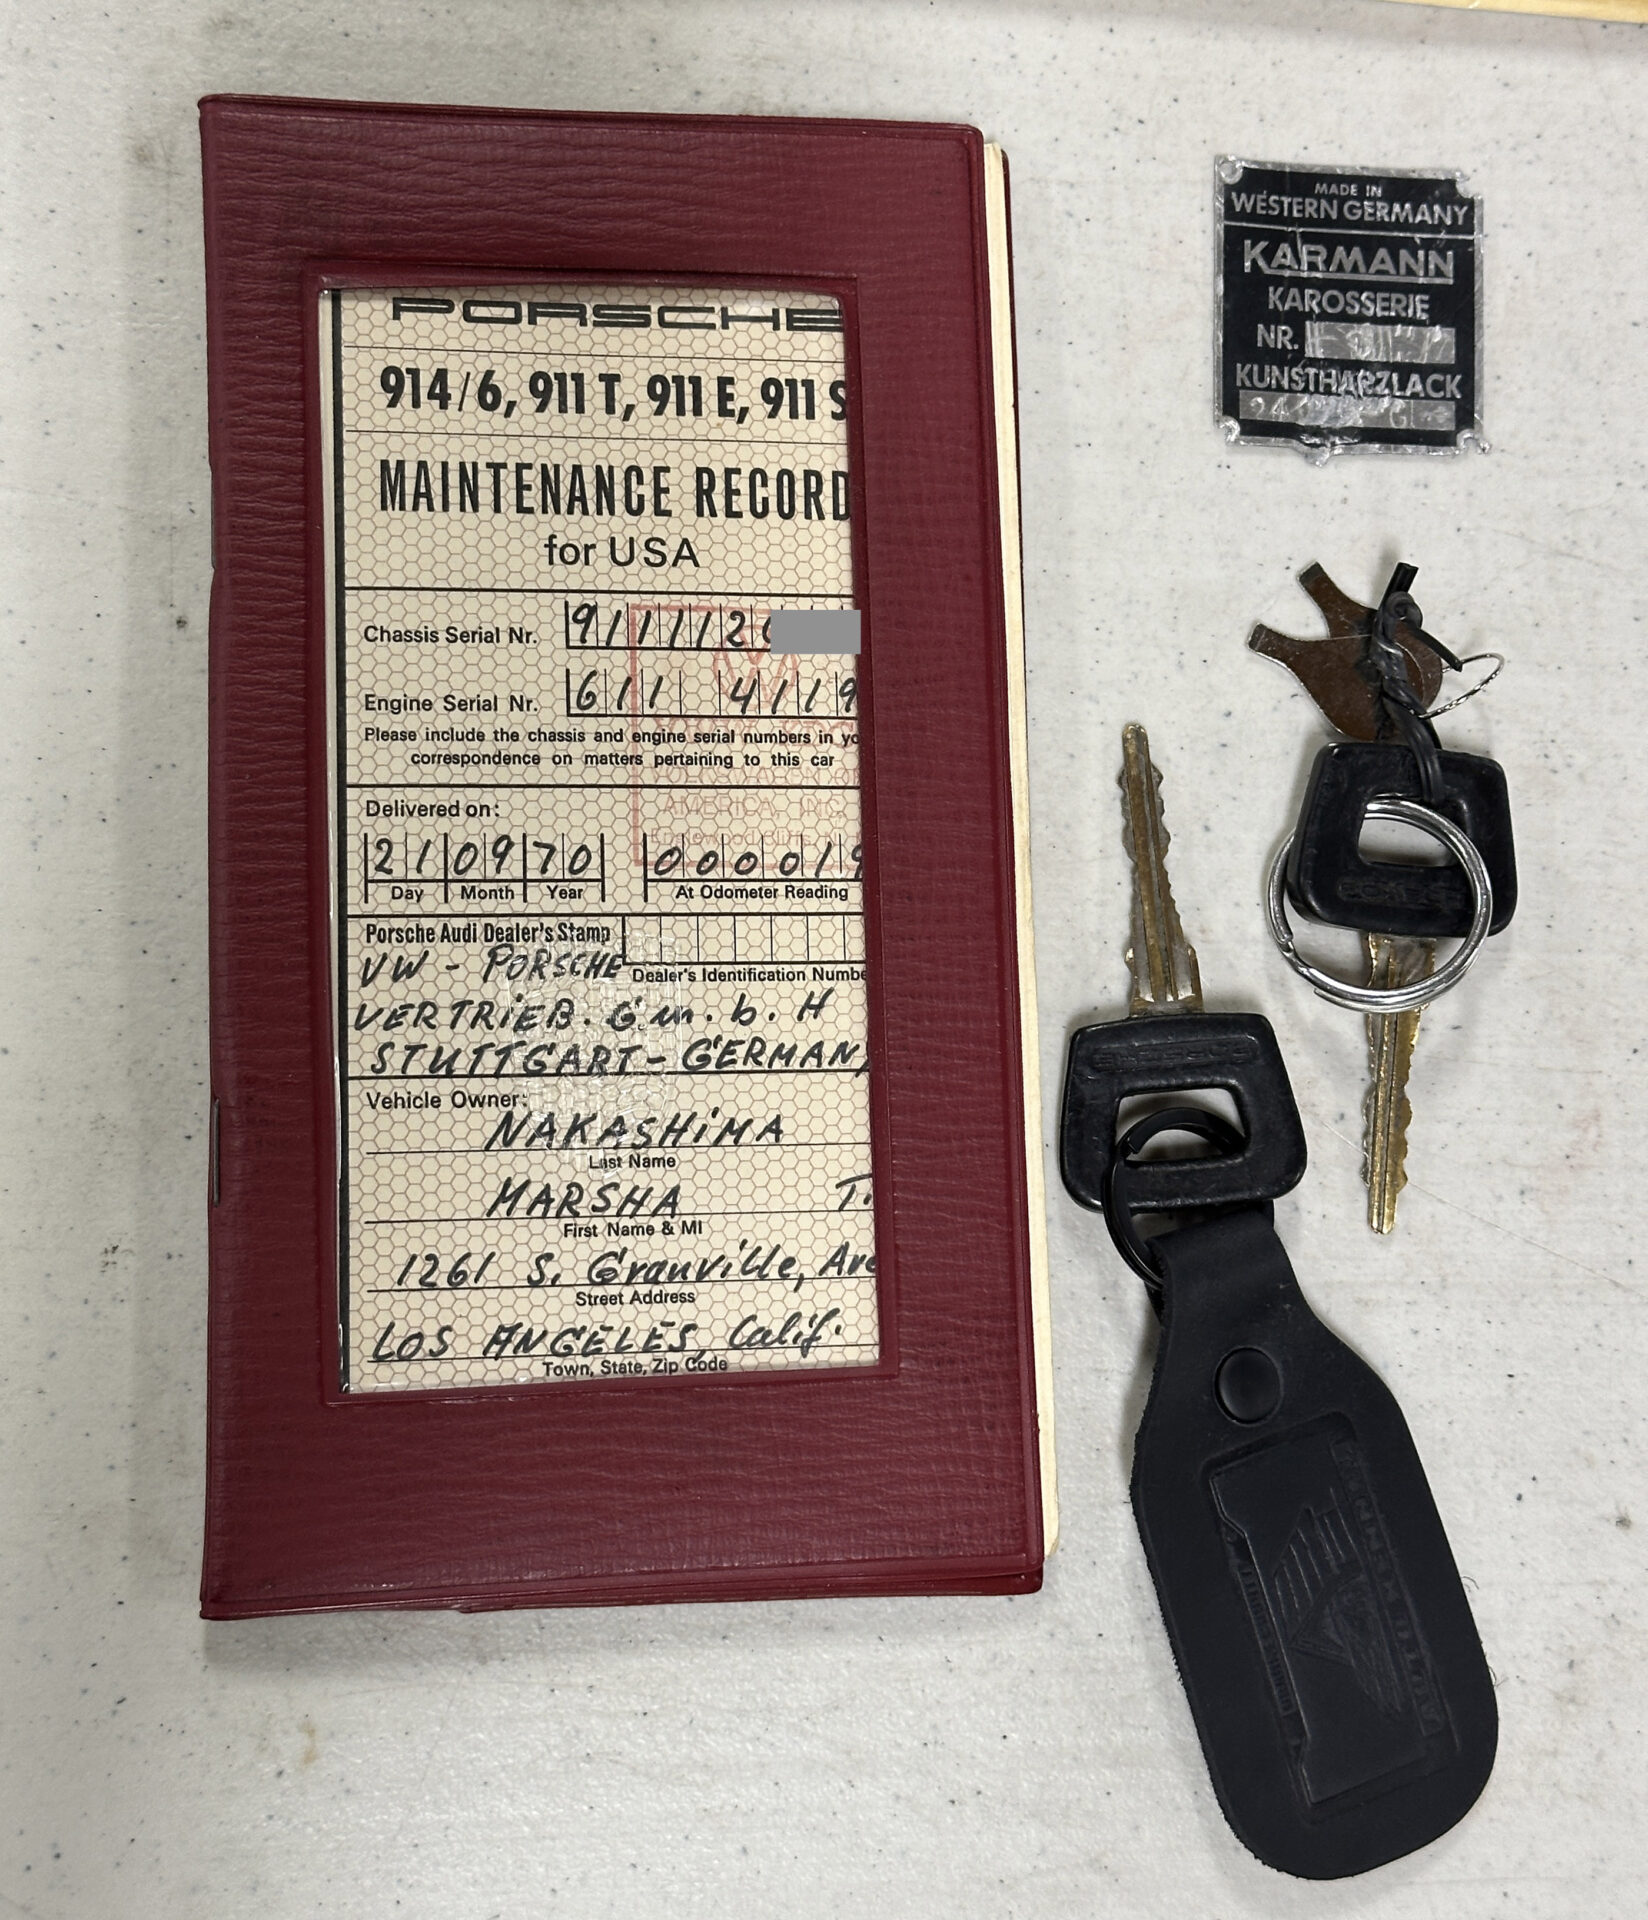 PORSCHE
914/6, 911 T, 911 E, 911 S
MAINTENANCE RECORD
for USA
Chassis Serial Nr. 911112
Engine Serial Nr. 611 4119
Please include the chassis and engine serial numbers in yo
correspondence on matters pertaining to this car
AMERICA, INC.
Delivered on:
21 09 70 000019
Day Month Year At Odometer Reading
Porsche Audi Dealer's Stamp
VW - PORSCHE
Dealer's Identification Numbe
VERTRIEB. G.m.b.H
STUTTGART - GERMANY
Vehicle Owner:
NAKASHiMA
Last Name
MARSHA T.
First Name & MI
1261 S. Granville, Ave
Street Address
LOS ANGELES, Calif.
Town, State, Zip Code
MADE IN
WESTERN GERMANY
KARMANN
KAROSSERIE
NR.
KUNSTHARZLACK
PORSCHE
PORSCHE